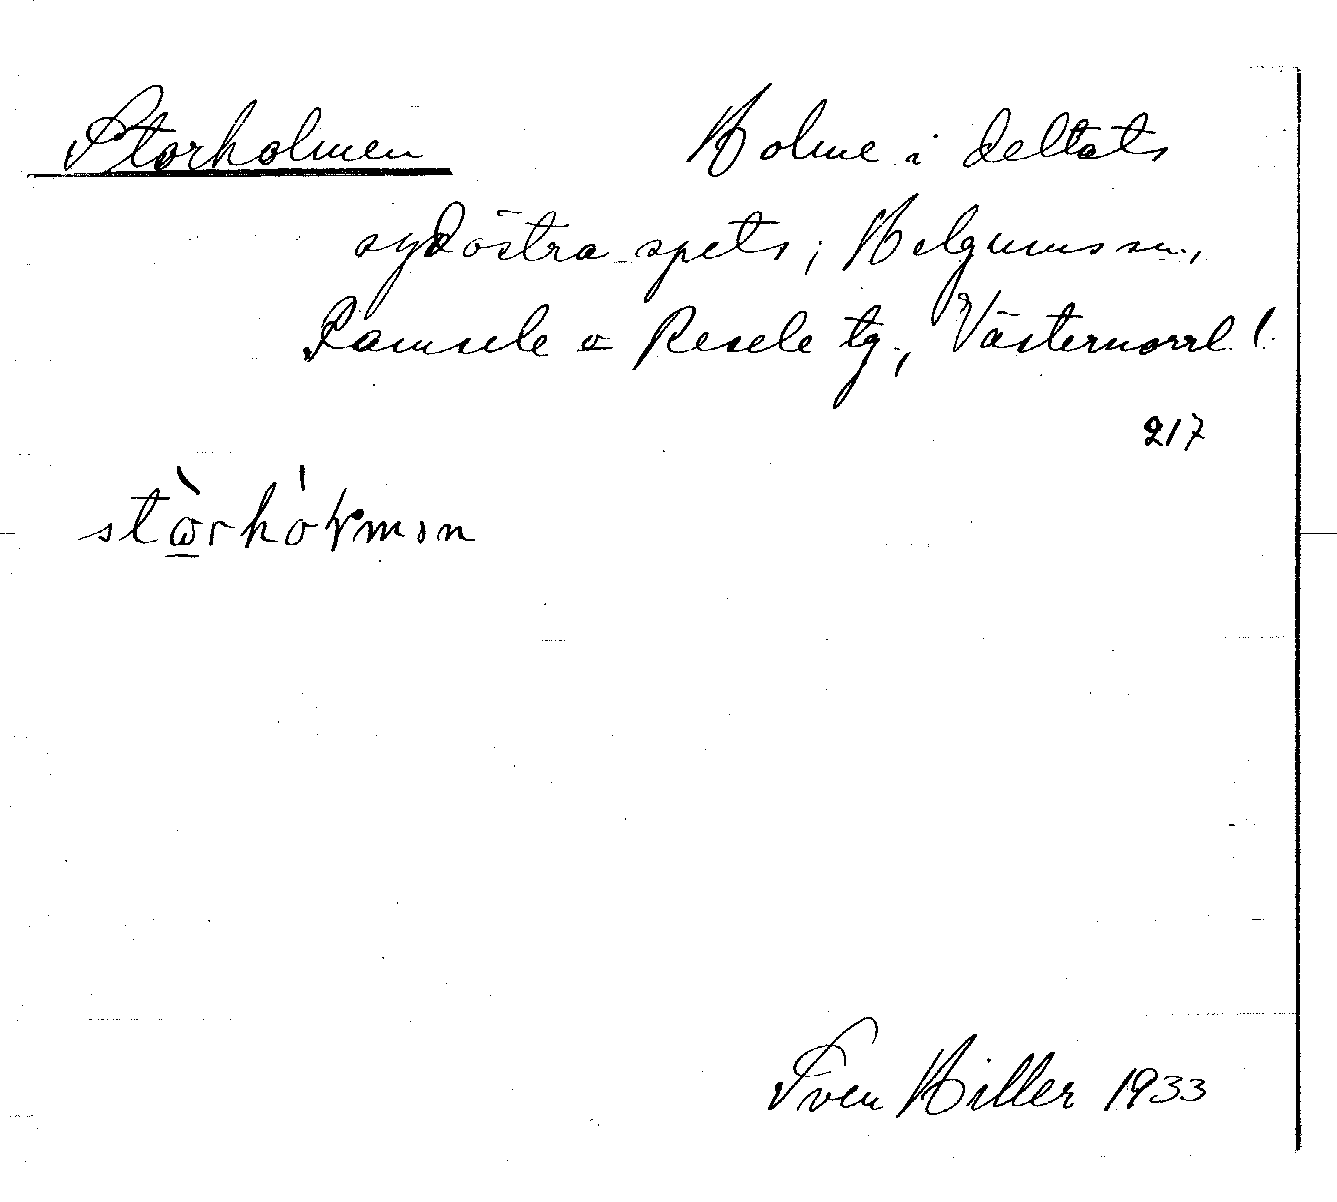 Storholmen Holme i deltats
sydöstra spets; Helgums sn.,
Ramsele o Resele tg., Västernorrl l.
217
stὼ̲rhól̥mən
Sven Hiller 1933